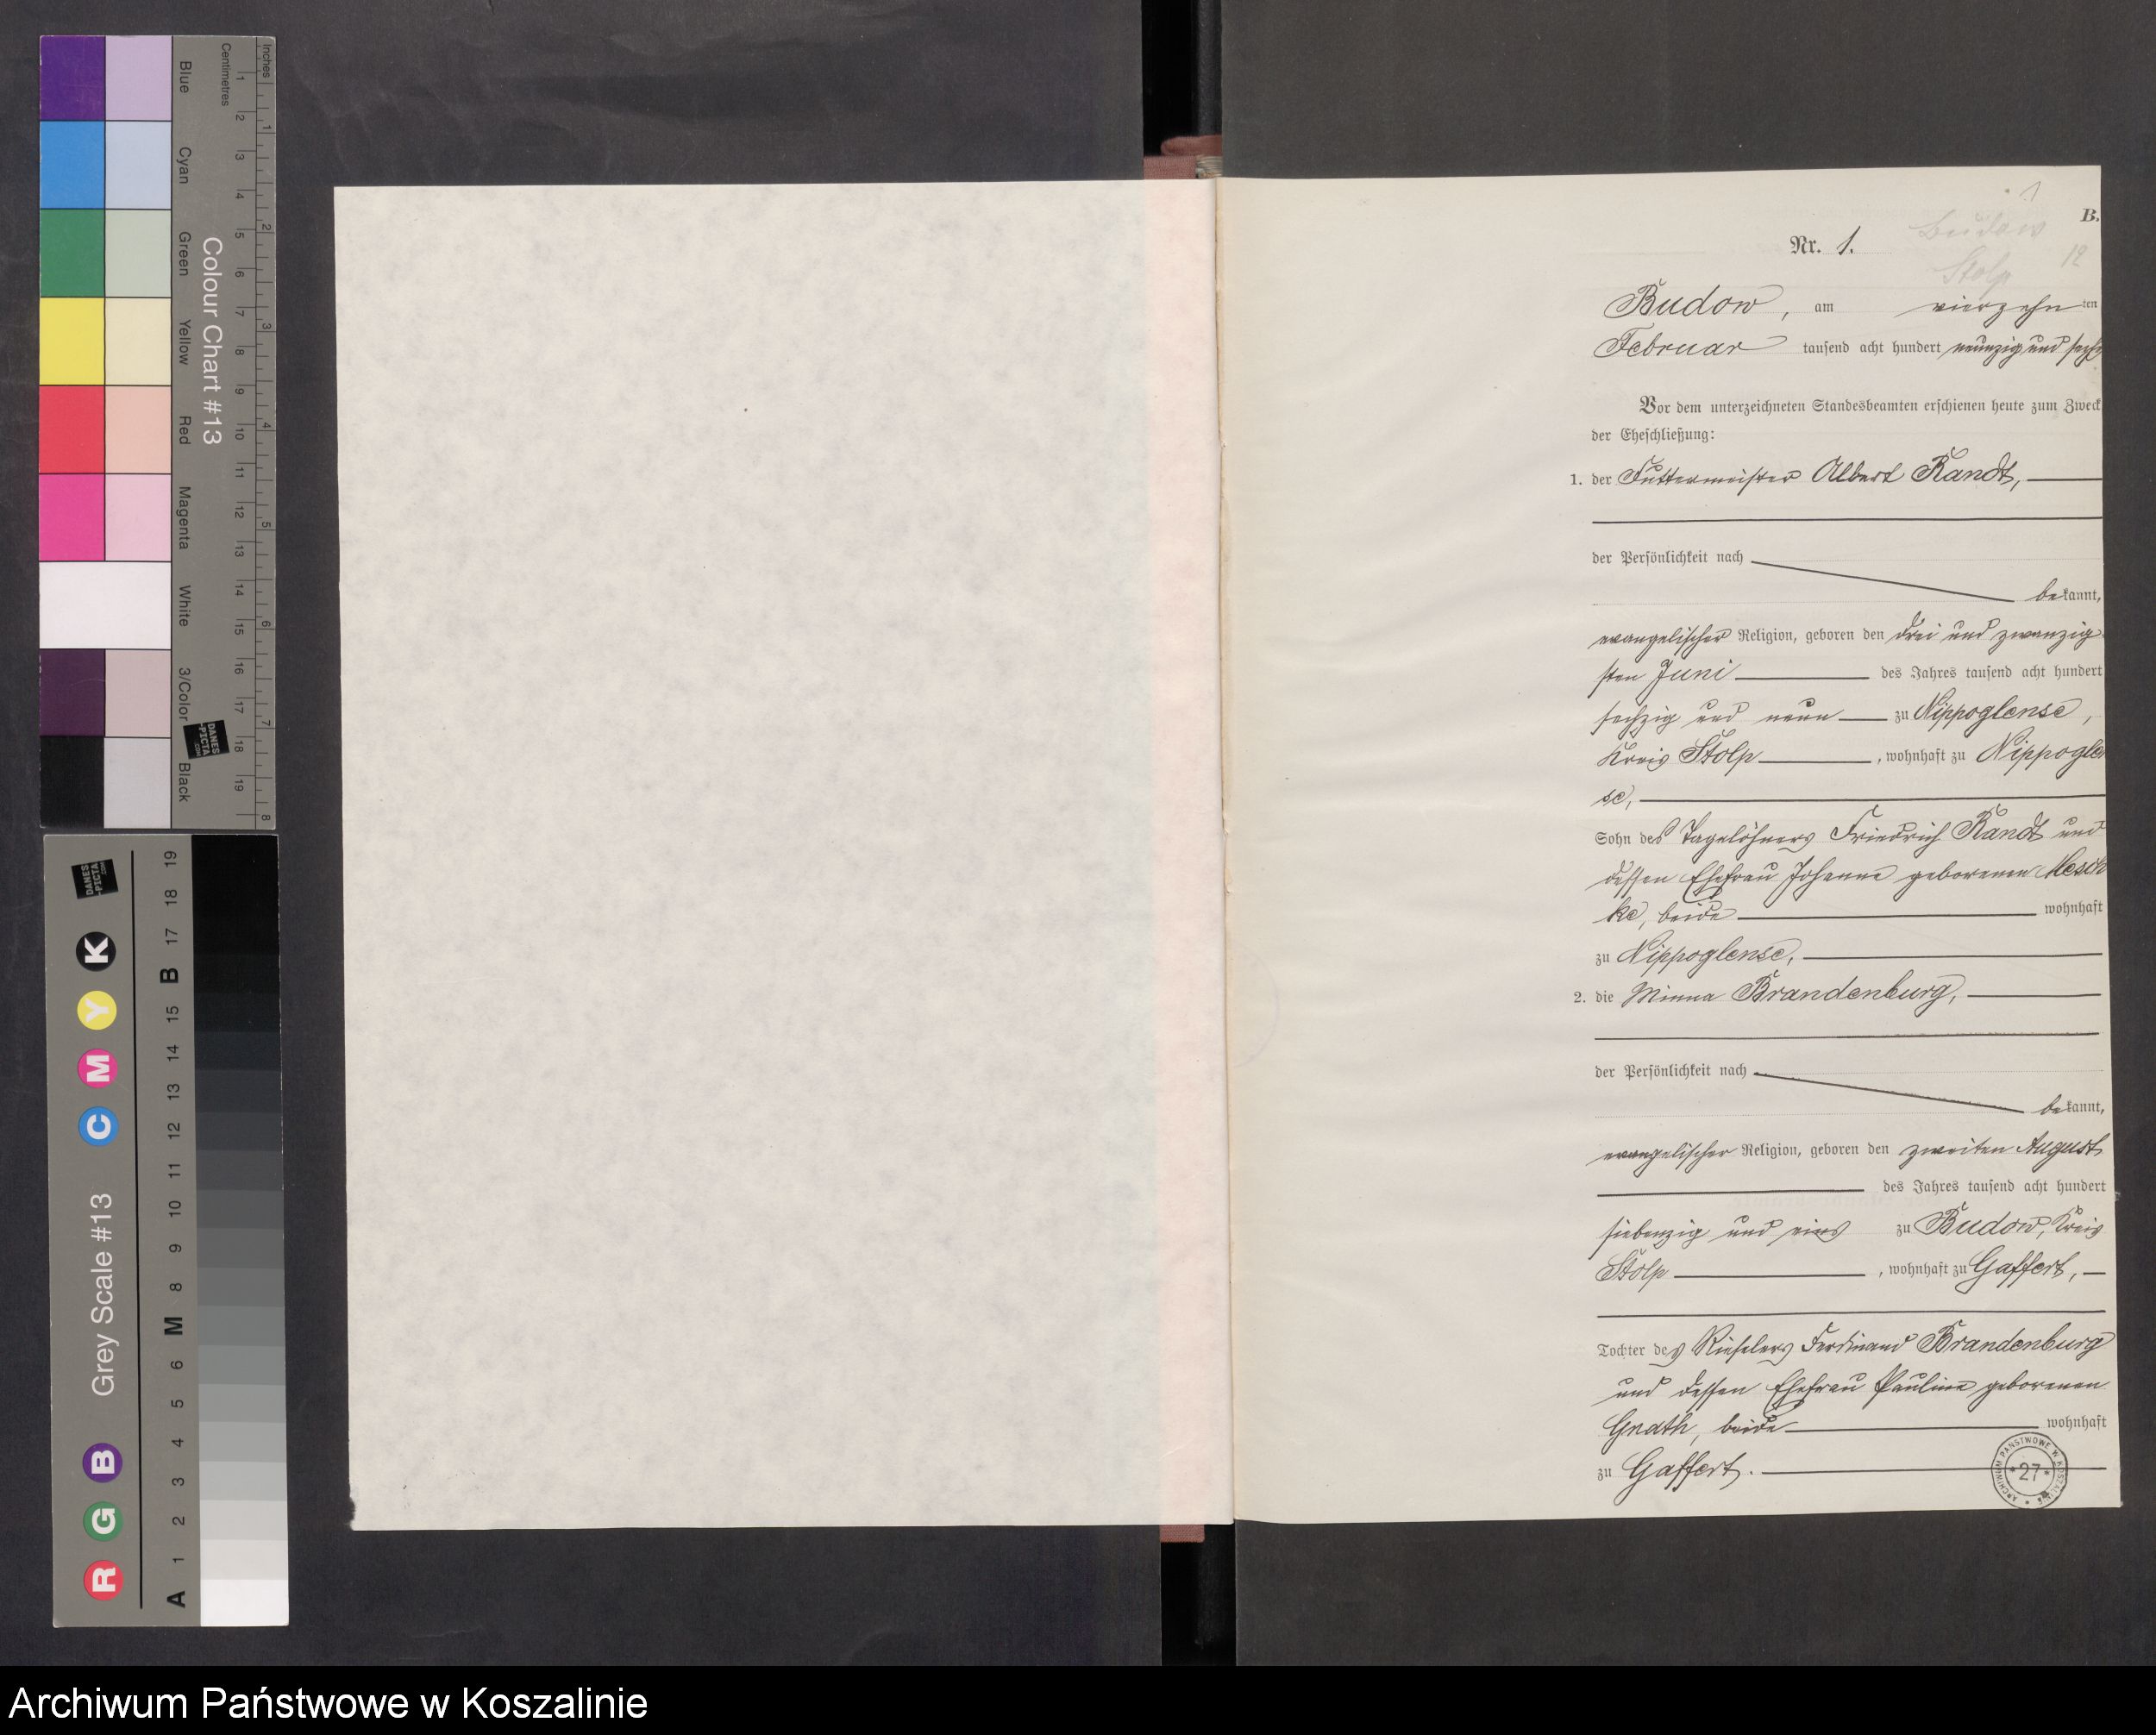 Inches
Centimetres
1 2 3 4 5 6 7 8 9 10 11 12 13 14 15 16 17 18 19
1 2 3 4 5 6 7 8
Colour Chart #13
Blue
Cyan
Green
Yellow
Red
Magenta
White
3/Color
Black
DANES
-PICTA
.COM
Grey Scale #13
R G B C M Y K
A 1 2 3 4 5 6 M 8 9 10 11 12 13 14 15 B 17 18 19
DANES
-PICTA
.COM
1
B.
Budow
Nr. 1.
Stolp 12
Budow, am vierzehnten
Februar tausend acht hundert neunzig und sechs
Vor dem unterzeichneten Standesbeamten erschienen heute zum Zweck
der Eheschließung:
1. der Futtermeister Albert Randt,
der Persönlichkeit nach
bekannt,
evangelischer Religion, geboren den drei und zwanzig
sten Juni des Jahres tausend acht hundert
sechzig und neun zu Nippoglense,
Kreis Stolp, wohnhaft zu Nippoglen
se,
Sohn des Tagelöhners Friedrich Randt und
dessen Ehefrau Johanne geborenen Mesch
ke, beide wohnhaft
zu Nippoglense,
2. die Minna Brandenburg,
der Persönlichkeit nach
bekannt,
evangelischer Religion, geboren den zweiten August
des Jahres tausend acht hundert
siebenzig und eins zu Budow, Kreis
Stolp, wohnhaft zu Gaffert,
Tochter des Rieselers Ferdinand Brandenburg
und dessen Ehefrau Pauline geborenen
Gnath, beide wohnhaft
zu Gaffert.
ARCHIWUM PAŃSTWOWE W KOSZALINIE
* 27 *
Archiwum Państwowe w Koszalinie